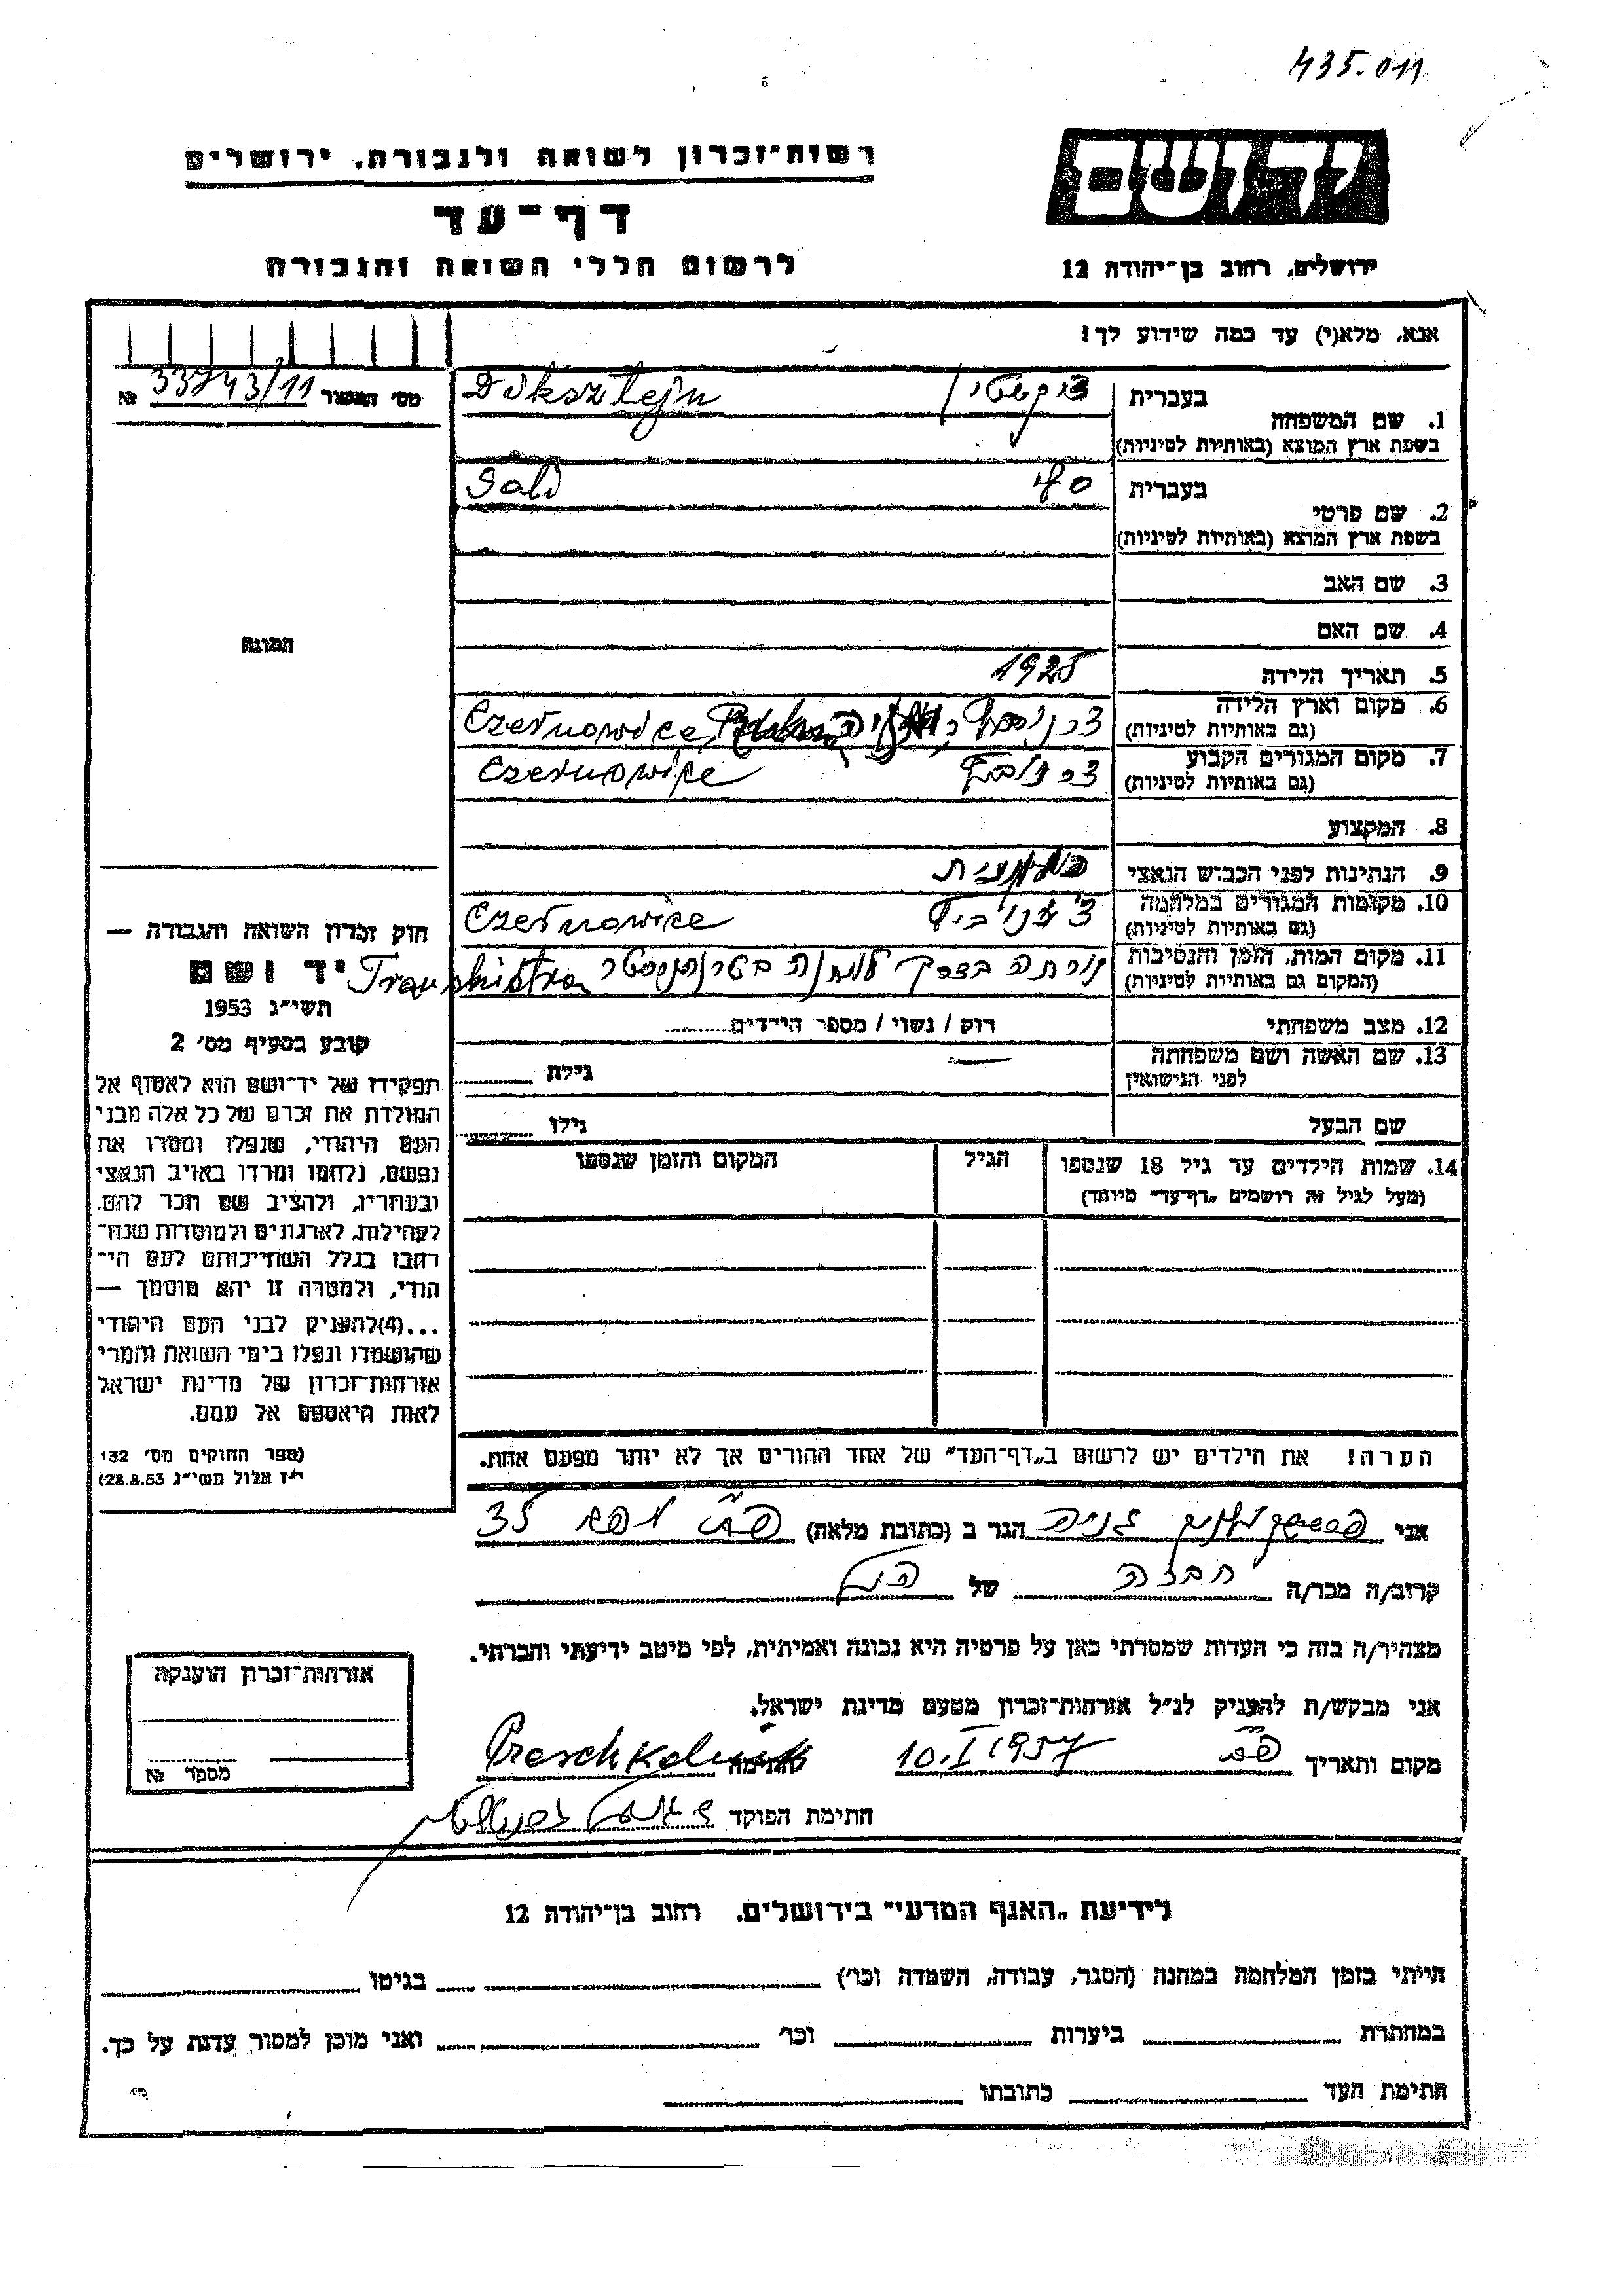 435.011
יד ושם
רשות־זכרון לשואה ולגבורה, ירושלים
דף־עד
לרשום חללי השואה והגבורה
ירושלים, רחוב בן־יהודה 12
אנא, מלא(י) עד כמה שידוע לך!
מס' האשור 33743/11 №
1. שם המשפחה
בעברית
Diksztejn
בשפת ארץ המוצא (באותיות לטיניות)
2. שם פרטי
בעברית סלי
Sali
בשפת ארץ המוצא (באותיות לטיניות)
3. שם האב
4. שם האם
5. תאריך הלידה 1925
6. מקום וארץ הלידה
(גם באותיות לטיניות)
Czernowice,
7. מקום המגורים הקבוע
(גם באותיות לטיניות)
Czernowice
8. המקצוע
9. הנתינות לפני הכבוש הנאצי
10. מקומות המגורים במלחמה
(גם באותיות לטיניות)
Czernowice
11. מקום המות, הזמן והנסיבות
(המקום גם באותיות לטיניות)
בדרך למחנה בטרנסניסטר Transnistra
12. מצב משפחתי רוק / נשוי / מספר הילדים
13. שם האשה ושם משפחתה
לפני הנישואין
גילה
שם הבעל גילו
14. שמות הילדים עד גיל 18 שנספו
(מעל לגיל זה רושמים „דף־עד" מיוחד)
הגיל
המקום והזמן שנספו
הערה! את הילדים יש לרשום ב„דף־העד" של אחד ההורים אך לא יותר מפעם אחת.
התמונה
חוק זכרון השואה והגבורה —
יד ושם
תשי"ג 1953
קובע בסעיף מס' 2
תפקידו של יד־ושם הוא לאסוף אל
המולדת את זכרם של כל אלה מבני
העם היהודי, שנפלו ומסרו את
נפשם, נלחמו ומרדו באויב הנאצי
ובעוזריו, ולהציב שם וזכר להם,
לקהילות, לארגונים ולמוסדות שנח־
רבו בגלל השתייכותם לעם הי־
הודי, ולמטרה זו יהא מוסמך —
...(4)להעניק לבני העם היהודי
שהושמדו ונפלו בימי השואה והמרי
אזרחות־זכרון של מדינת ישראל
לאות היאספם אל עמם.
(ספר החוקים מס' 132
י"ז אלול תשי"ג 28.8.53)
אני הגר ב (כתובת מלאה) 35
קרוב/ה מכר/ה חברה של
מצהיר/ה בזה כי העדות שמסרתי כאן על פרטיה היא נכונה ואמיתית, לפי מיטב ידיעתי והכרתי.
אני מבקש/ת להעניק לנ"ל אזרחות־זכרון מטעם מדינת ישראל.
מקום ותאריך 10.I 1957 חתימה
חתימת הפוקד
אזרחות־זכרון הוענקה
מספר №
לידיעת „האגף המדעי" בירושלים. רחוב בן־יהודה 12
הייתי בזמן המלחמה במחנה (הסגר, עבודה, השמדה וכו') בגיטו
במחתרת ביערות וכו' ואני מוכן למסור עדות על כך.
חתימת העד כתובתו